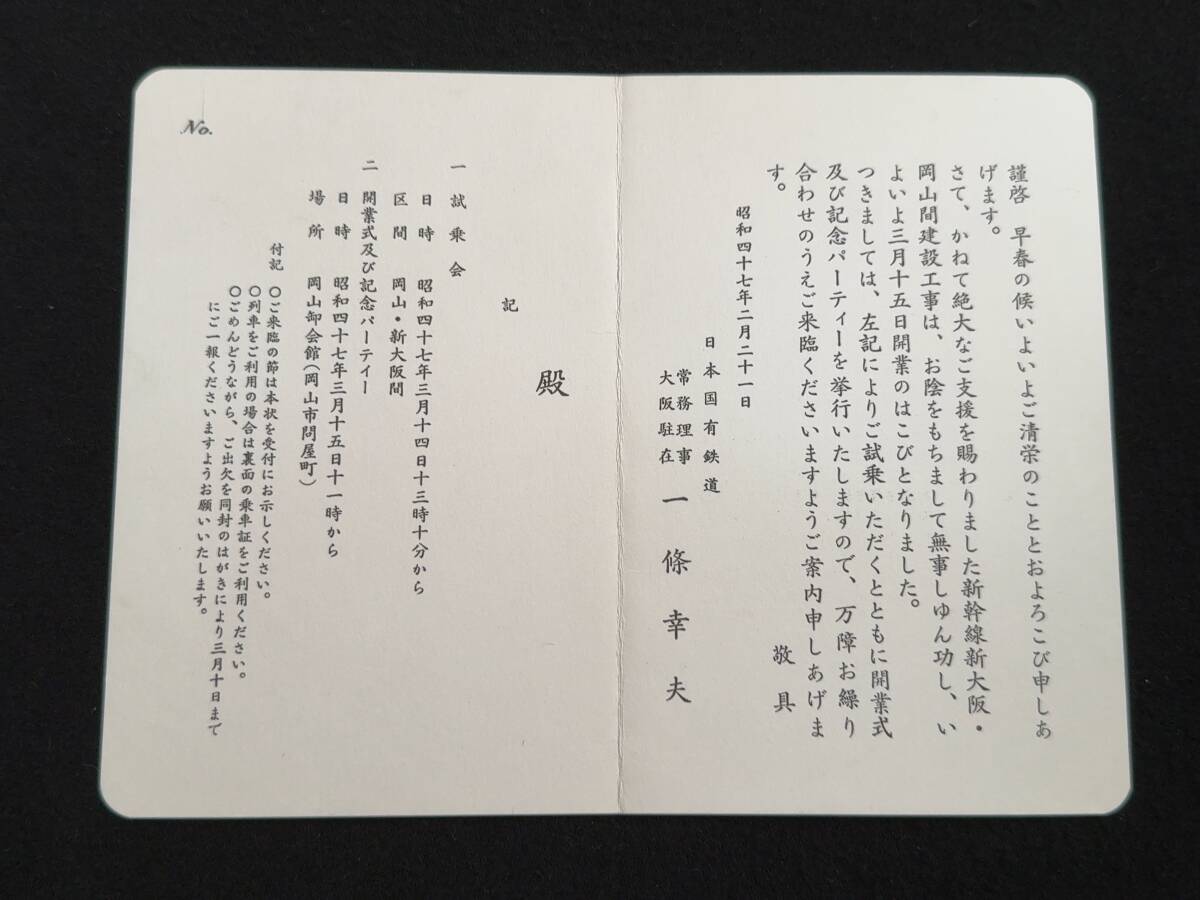 謹啓 早春の候いよいよご清栄のこととおよろこび申しあ
げます。
さて、かねて絶大なご支援を賜わりました新幹線新大阪・
岡山間建設工事は、お陰をもちまして無事しゆん功し、い
よいよ三月十五日開業のはこびとなりました。
つきましては、左記によりご試乗いただくとともに開業式
及び記念パーティーを挙行いたしますので、万障お繰り
合わせのうえご来臨くださいますようご案内申しあげま
す。
敬具
昭和四十七年二月二十一日
日本国有鉄道
常務理事
大阪駐在
一條幸夫
殿
記
一 試乗会
日時 昭和四十七年三月十四日十三時十分から
区間 岡山・新大阪間
二 開業式及び記念パーテイー
日時 昭和四十七年三月十五日十一時から
場所 岡山卸会館(岡山市問屋町)
付記 ○ご来臨の節は本状を受付にお示しください。
○列車をご利用の場合は裏面の乗車証をご利用ください。
○ごめんどうながら、ご出欠を同封のはがきにより三月十日まで
にご一報くださいますようお願いいたします。
No.